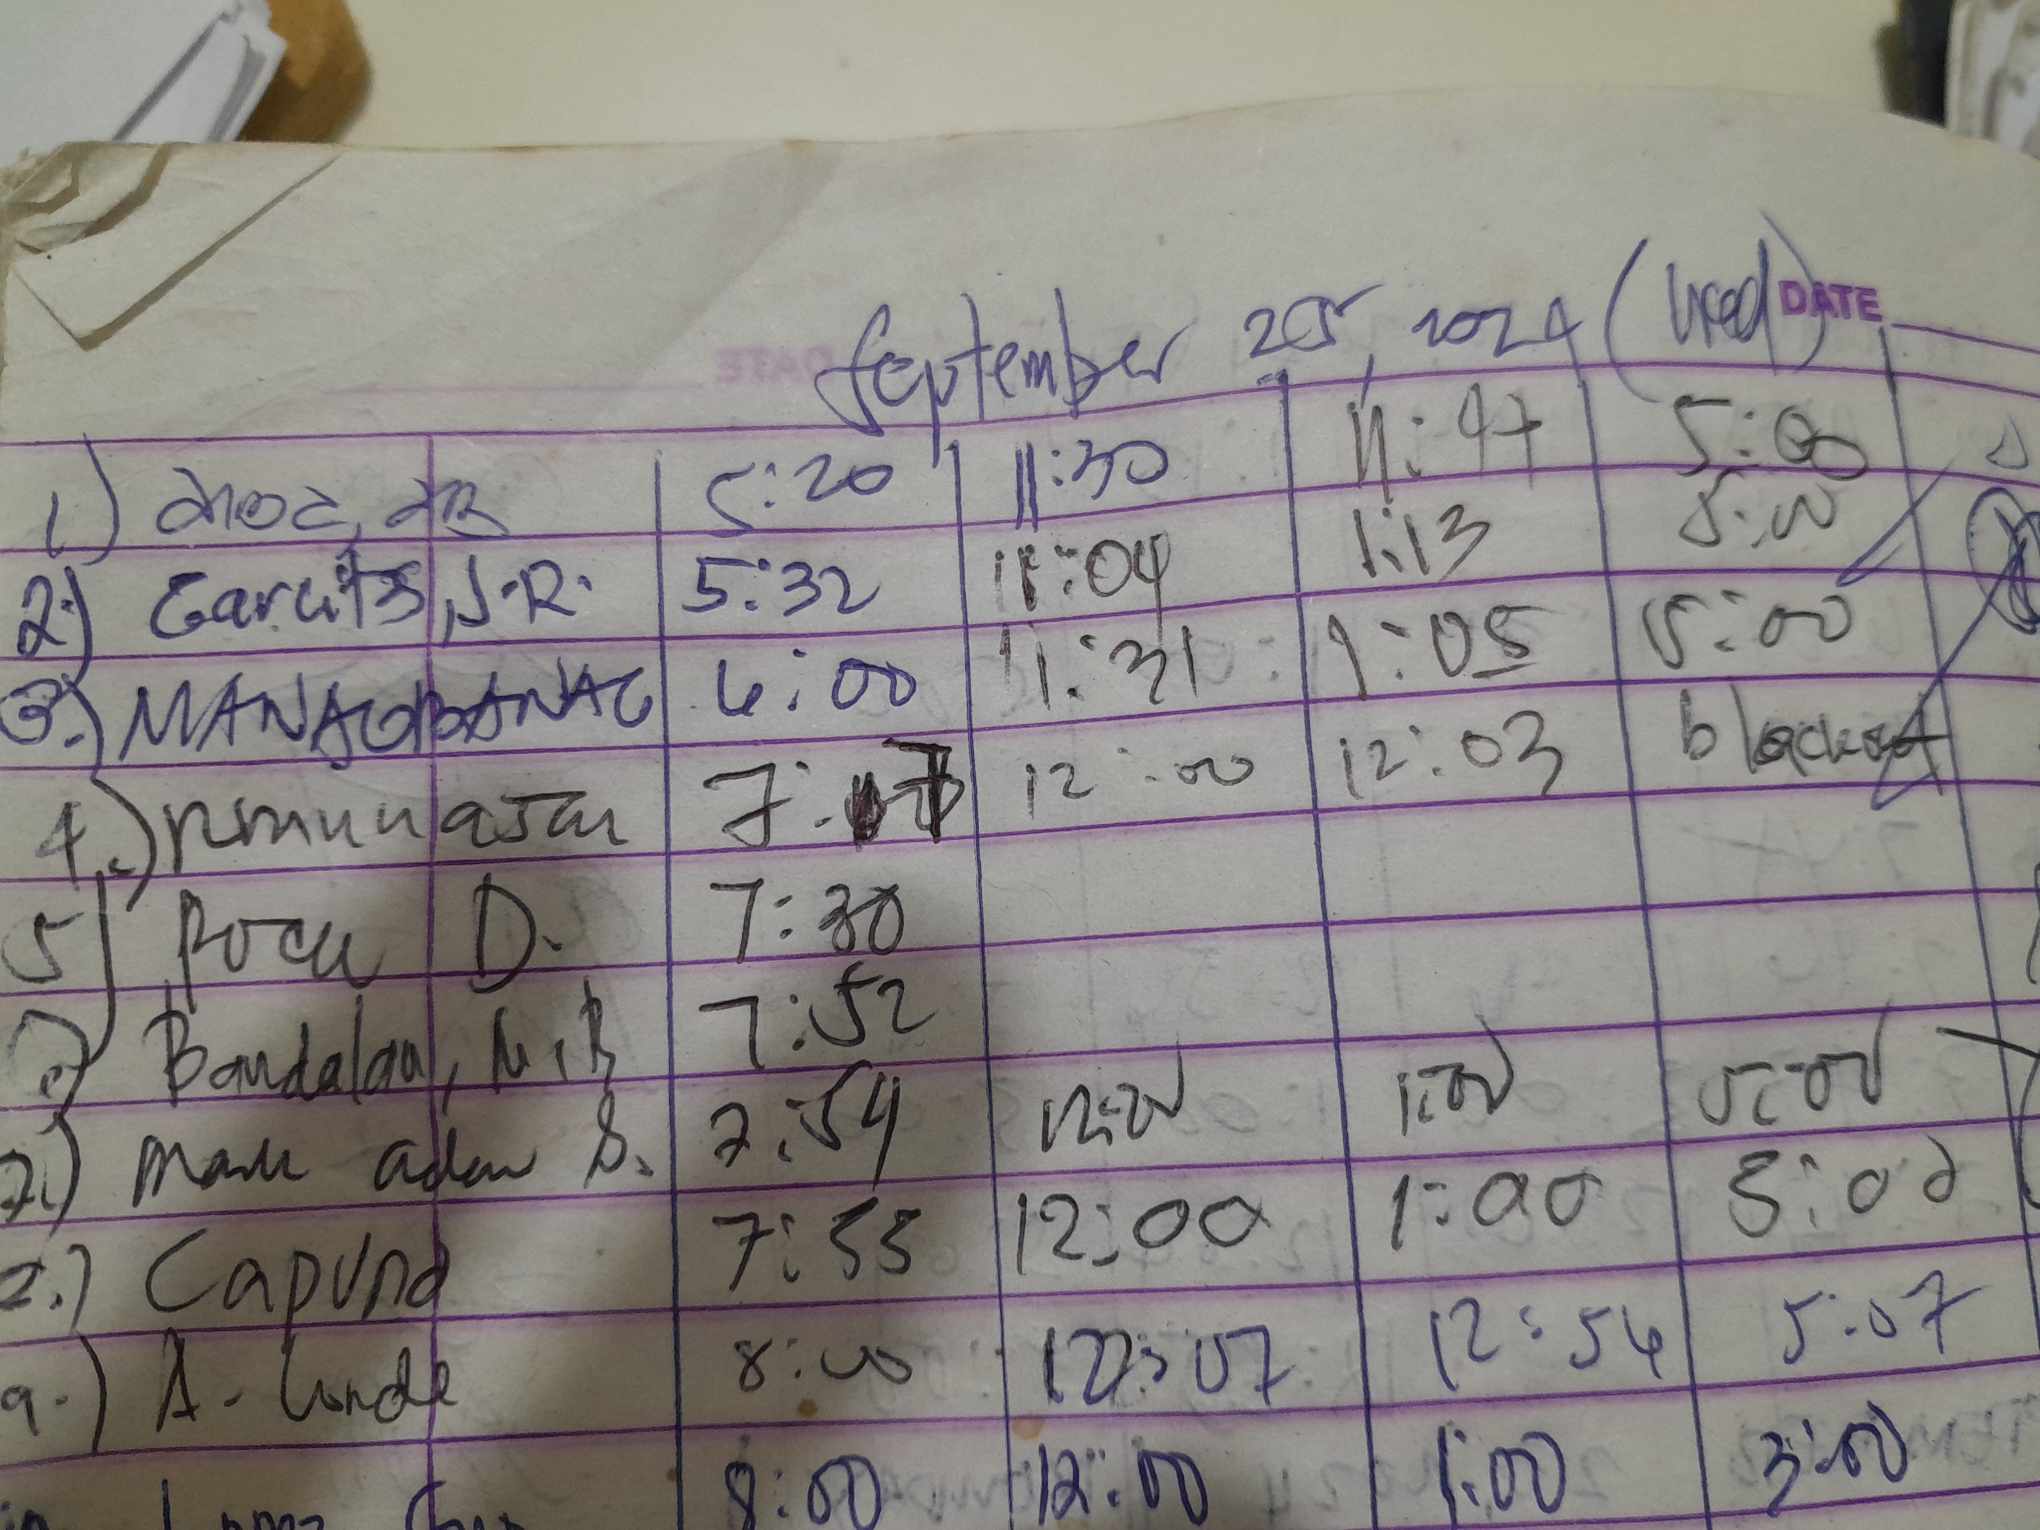 DATE
September 25, 2024 (Wed)
1.) 5:20 11:30 11:47 5:00
2.) J.R. 5:32 11:04 1:13 5:00
3.) MANAGBANAG 6:00 11:31 1:05 5:00
4.) 12:00 12:03 blackout
5) Roca D. 7:30
Bandalan, 7:52
7.) Mark adan S. 7:54 12:00 1:00 5:00
Capuno 7:55 12:00 1:00 5:00
9.) A. Conde 8:00 12:07 12:54 5:07
8:00 12:00 1:00 3:00